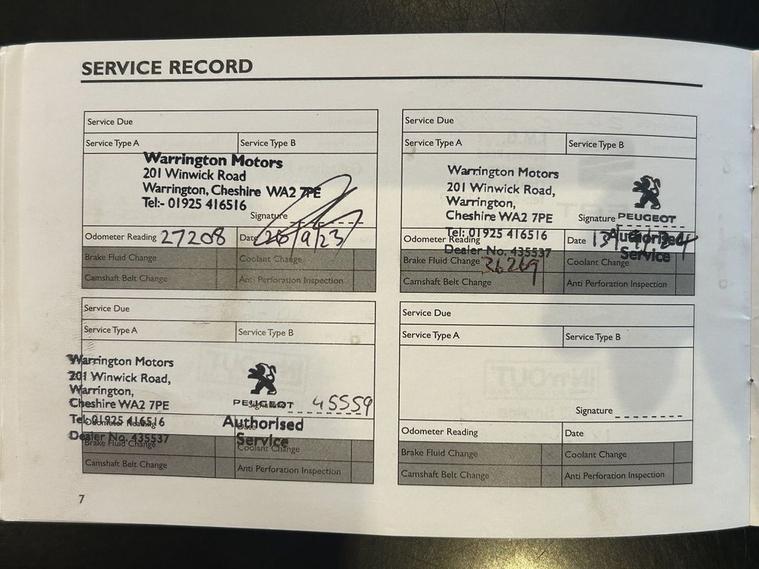 SERVICE RECORD
Service Due
Service Type A Service Type B
Warrington Motors
201 Winwick Road
Warrington, Cheshire WA2 7PE
Tel:- 01925 416516
Signature
Odometer Reading 27208 Date 26/9/23
Brake Fluid Change Coolant Change
Camshaft Belt Change Anti Perforation Inspection
Service Due
Service Type A Service Type B
Warrington Motors
201 Winwick Road,
Warrington,
Cheshire WA2 7PE
Signature PEUGEOT
Tel: 01925 416516
Odometer Reading Date 13 Authorised
Dealer No. 435537 Service
Brake Fluid Change 36269 Coolant Change
Camshaft Belt Change Anti Perforation Inspection
Service Due
Service Type A Service Type B
Warrington Motors
201 Winwick Road,
Warrington,
Cheshire WA2 7PE
PEUGEOT 45559
Tel: 01925 416516 Authorised
Dealer No. 435537 Service
Brake Fluid Change Coolant Change
Camshaft Belt Change Anti Perforation Inspection
Service Due
Service Type A Service Type B
Signature
Odometer Reading Date
Brake Fluid Change Coolant Change
Camshaft Belt Change Anti Perforation Inspection
7